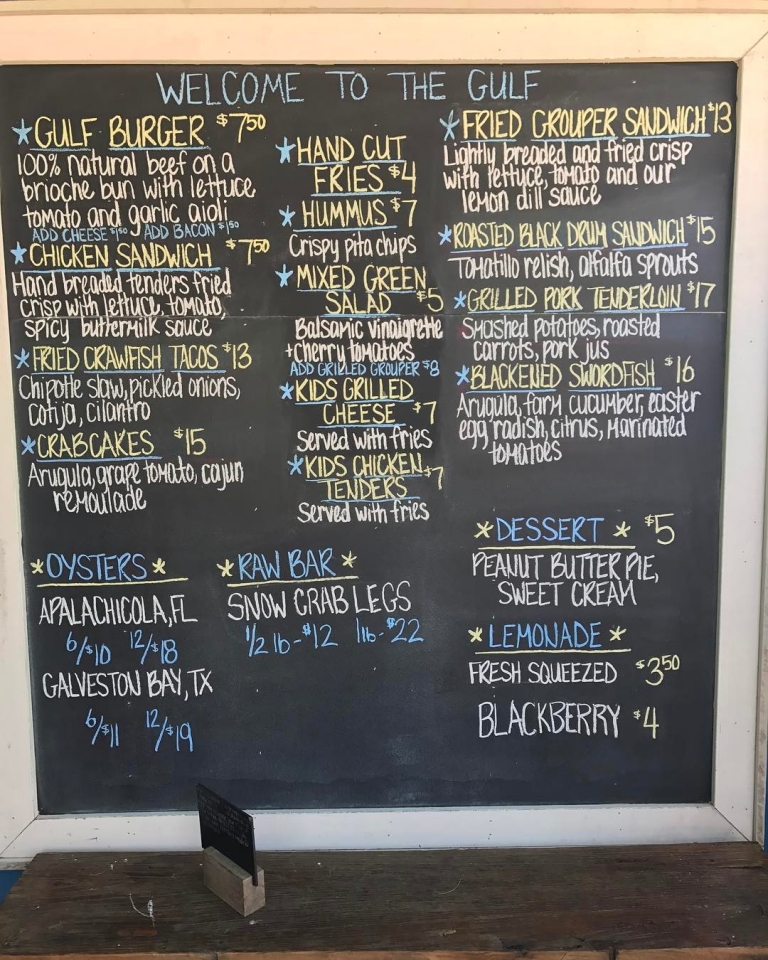 WELCOME TO THE GULF
*GULF BURGER $7.50
100% natural beef on a
brioche bun with lettuce
tomato and garlic aioli
ADD CHEESE $1.50 ADD BACON $1.50
*CHICKEN SANDWICH $7.50
Hand breaded tenders fried
crisp with lettuce, tomato,
spicy buttermilk sauce
*FRIED CRAWFISH TACOS $13
Chipotle slaw, pickled onions,
cotja, cilantro
*CRABCAKES $15
Arugula, grape tomato, cajun
remoulade
*HAND CUT
FRIES $4
*HUMMUS $7
Crispy pita chips
*MIXED GREEN
SALAD $5
Balsamic vinaigrette
+cherry tomatoes
ADD GRILLED GROUPER $8
*KIDS GRILLED
CHEESE $7
Served with fries
*KIDS CHICKEN
TENDERS $7
Served with fries
*FRIED GROUPER SANDWICH $13
Lightly breaded and fried crisp
with lettuce, tomato and our
lemon dill sauce
*ROASTED BLACK DRUM SANDWICH $15
Tomatillo relish, alfalfa sprouts
*GRILLED PORK TENDERLOIN $17
Smashed potatoes, roasted
carrots, pork jus
*BLACKENED SWORDFISH $16
Arugula, farm cucumber, easter
egg radish, citrus, marinated
tomatoes
*OYSTERS*
APALACHICOLA, FL
6/$10 12/$18
GALVESTON BAY, TX
6/$11 12/$19
*RAW BAR*
SNOW CRAB LEGS
1/2 lb-$12 1lb-$22
*DESSERT* $5
PEANUT BUTTER PIE,
SWEET CREAM
*LEMONADE*
FRESH SQUEEZED $3.50
BLACKBERRY $4